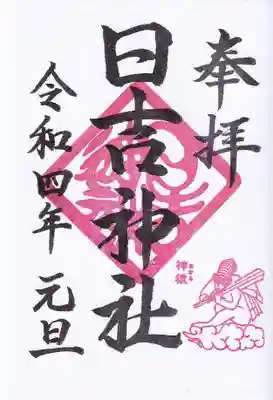 奉拝
日吉神社
令和四年 元旦
神猿
まさる